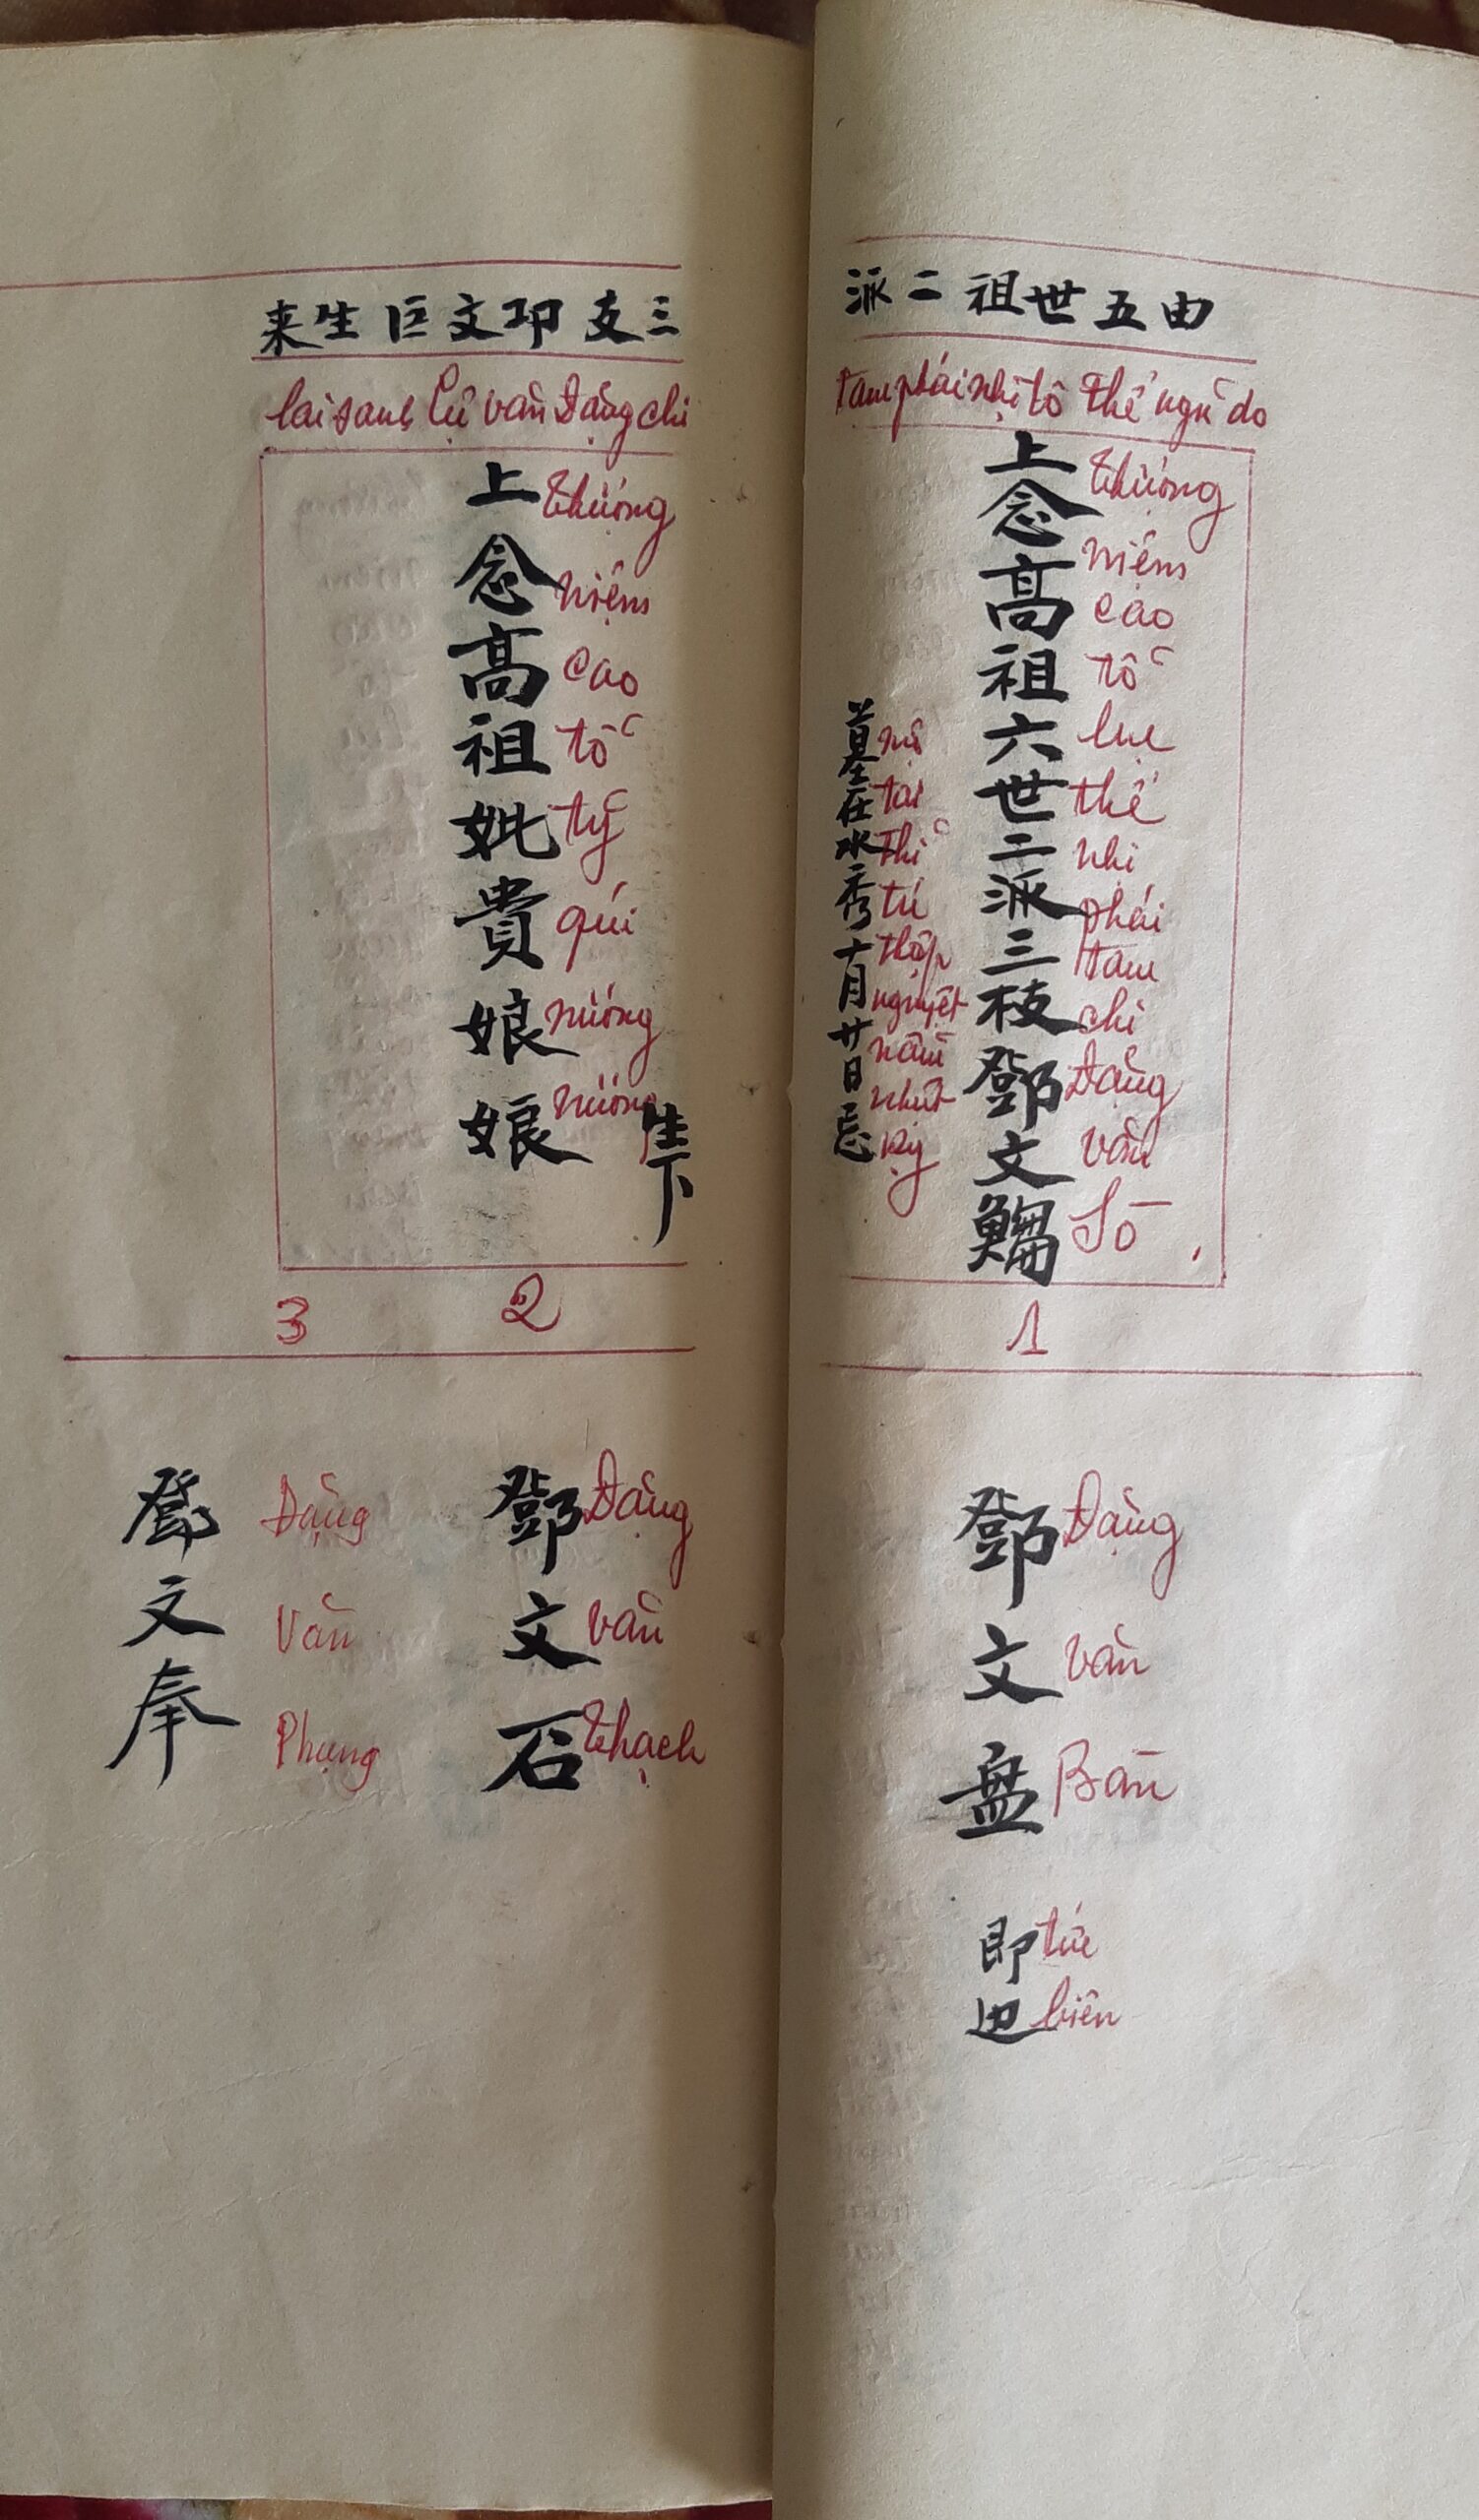 由五世祖二派
三支邓文巨生来
Tam phái nhị tổ thế ngũ do
lai sanh Cự văn Đặng chi
上念高祖六世二派三枝鄧文
Thượng niệm cao tổ lục thế nhị phái tam chi Đặng văn Sò
墓在水秀十月廿日忌
mộ tại Thỉ tú thập nguyệt nhựt kỵ
生下
上念高祖妣貴娘娘
Thượng niệm cao tổ tỷ quí nương nương
1
2
3
鄧文盤
Đặng văn Bàn
即边
tức biên
鄧文石
Đặng văn Thạch
鄧文奉
Đặng Văn Phụng